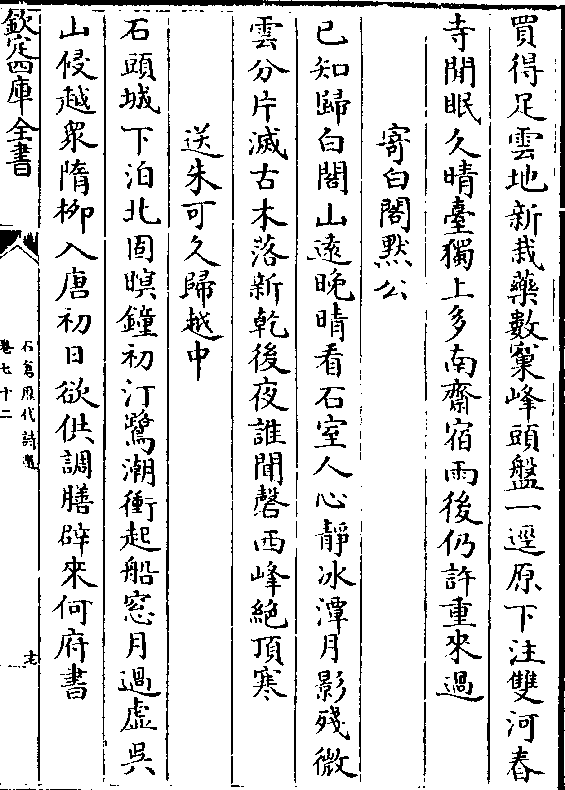 買得足雲地新栽藥數窠峰頭盤一逕原下注雙河春
寺閒眠久晴臺獨上多南齋宿雨後仍許重來過
寄白閣默公
已知歸白閣山遠晚晴看石室人心靜冰潭月影殘微
雲分片滅古木落新乾後夜誰聞磬西峰絶頂寒
送朱可久歸越中
石頭城下泊北固暝鐘初汀鷺潮衝起船窓月過虛吳
山侵越衆隋栁入唐初日欲供調膳辟來何府書
欽定四庫全書
石倉歷代詩選
卷七十二